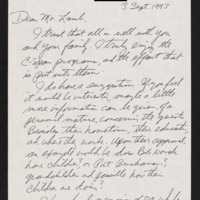 3 Sept. 1998
Dear Mr. Lamb,
I trust that all is well with you
and your family. I truly enjoy the
C-Span programs, and the effort that
is put into them.
I do have a suggestion. If you feel
it would be interesting, maybe a little
more information can be given, of a
personal nature, concerning the guests,
Besides their hometown, their education,
and where they work. Upon their approval,
an example would be does Bob Woods
have children? or Pat Buchanan's
grandchildren and possibly how their
children are doing?